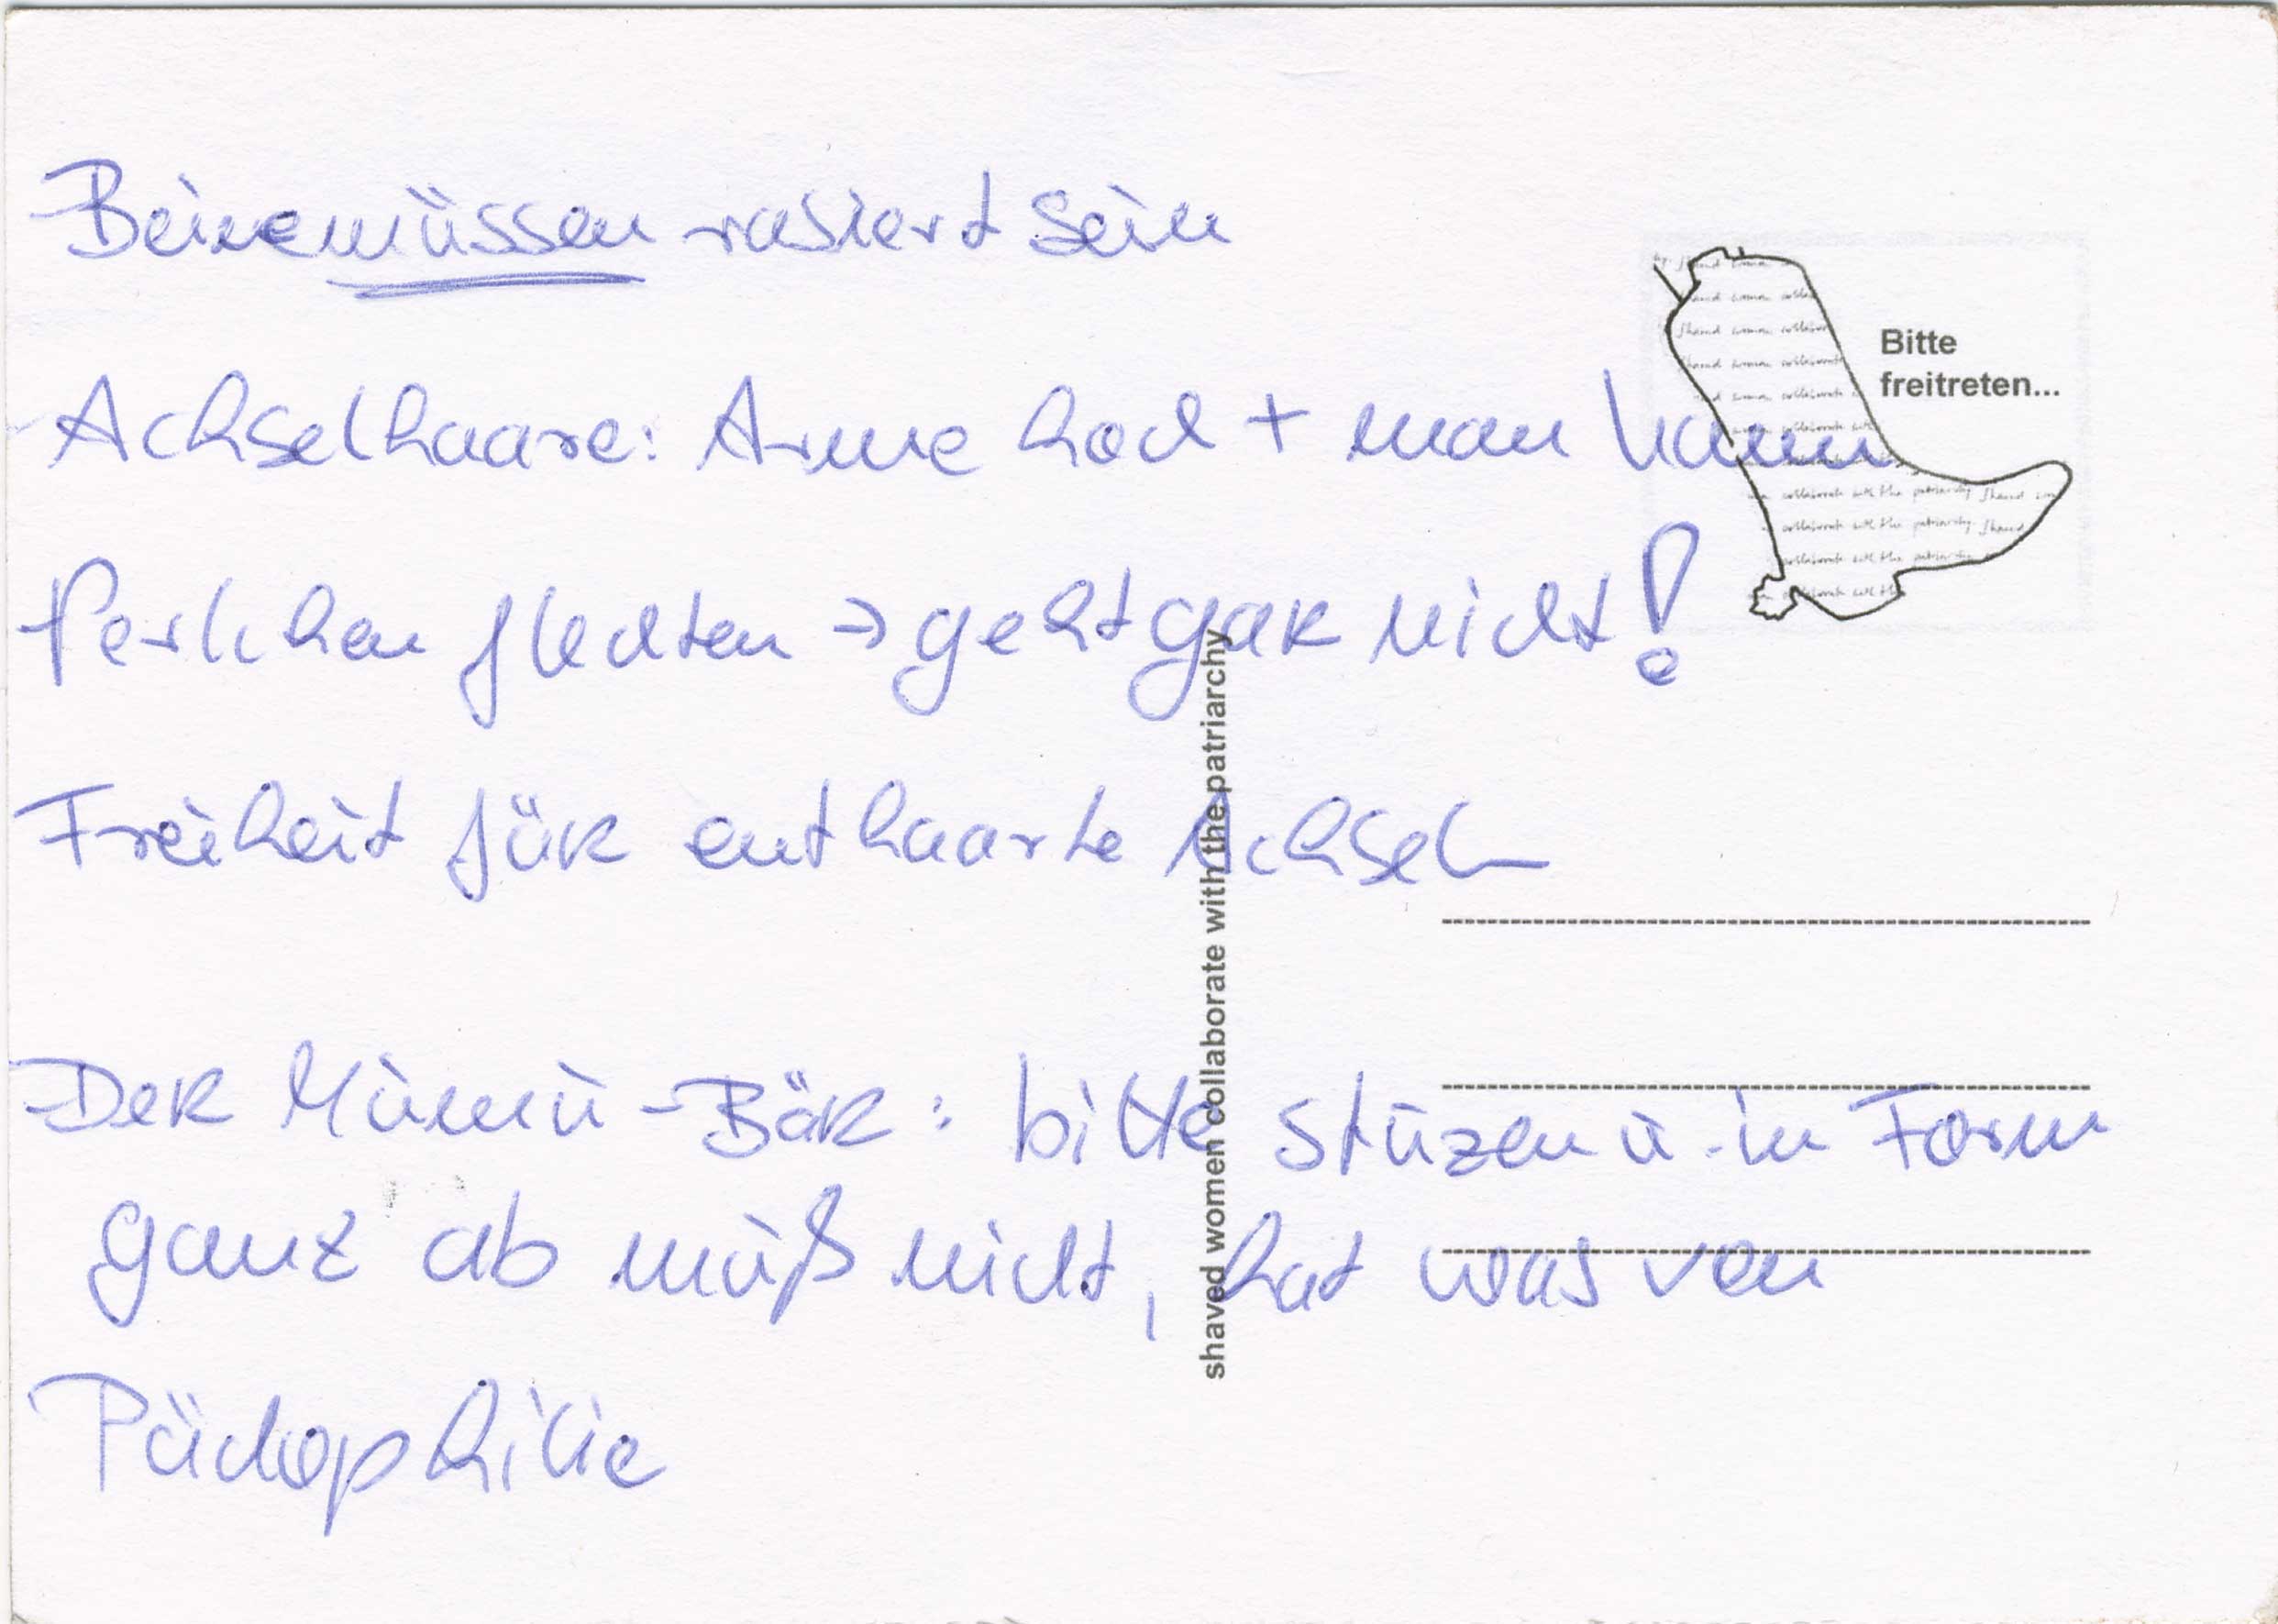 Beine müssen rasiert sein
Achselhaare: Arme hoch + man kann
Perlchen flechten → geht gar nicht!
Freiheit für enthaarte Achseln
Der Mumu-Bär: bitte stuzen u. in Form
ganz ab muß nicht, hat was von
Pädophilie
Bitte
freitreten...
shaved women collaborate with the patriarchy